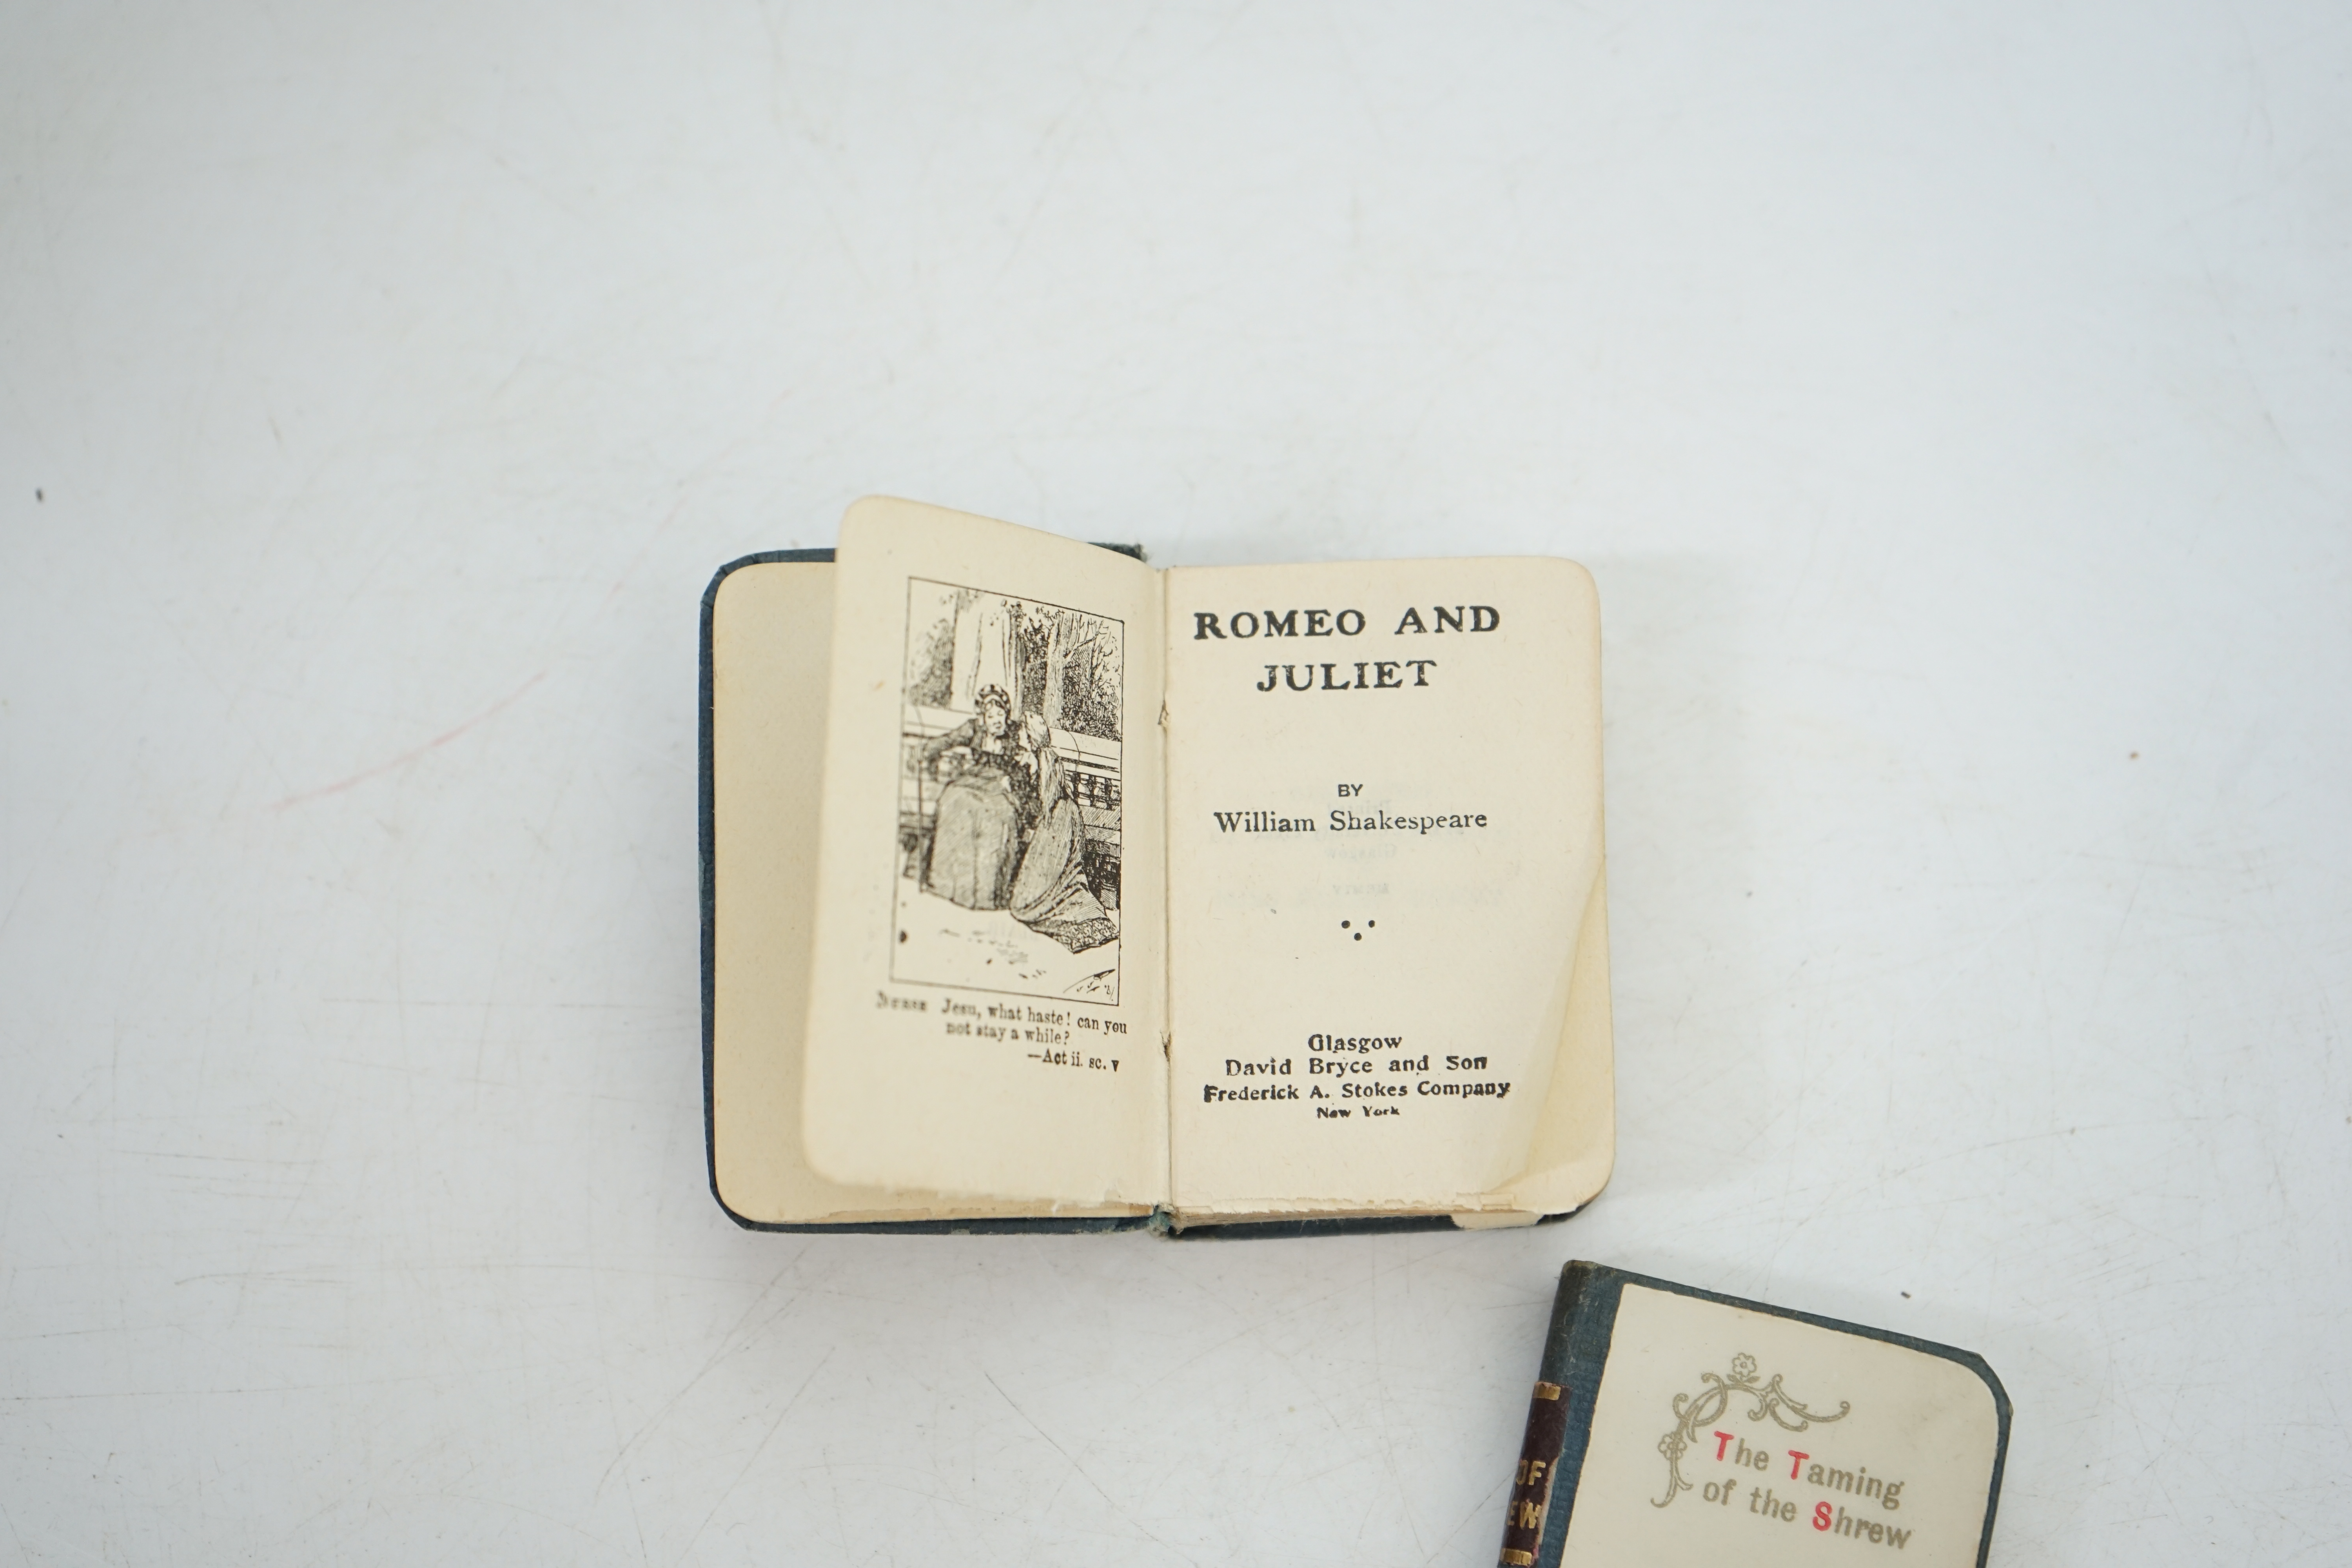 Nurse Jesu, what haste! can you
not stay a while?
—Act ii. sc. v
ROMEO AND
JULIET
BY
William Shakespeare
Glasgow
David Bryce and Son
Frederick A. Stokes Company
New York
OF
EW
The Taming
of the Shrew